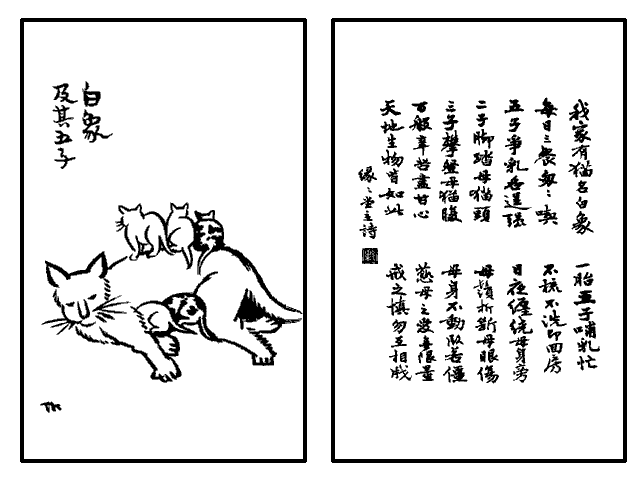 白象
及其五子
TK
我家有猫名白象 一胎五子哺乳忙
每日三餐匆〻喫 不梳不洗即回房
五子爭乳各逞强 日夜纏繞母身旁
二子脚踏母猫頭 母鬚折斷母眼傷
三子攀登母猫腹 母身不動臥若僵
百般辛苦盡甘心 慈母之愛無限量
天地生物皆如此 戒之慎勿互相戕
緣〻堂主詩